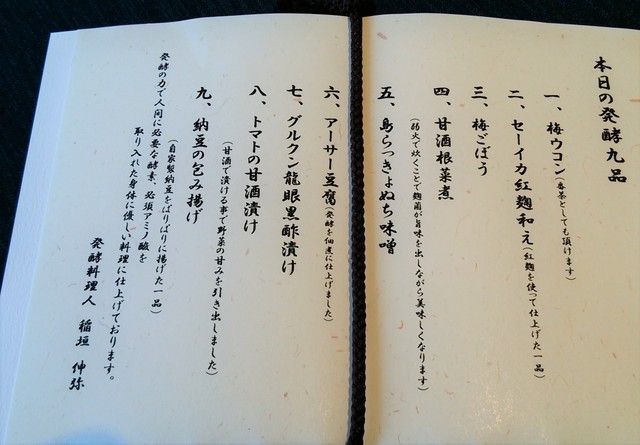 本日の発酵九品
一、梅ウコン(一番茶としても頂けます)
二、セーイカ紅麹和え(紅麹を使って仕上げた一品)
三、梅ごぼう
四、甘酒根菜煮
(弱火で炊くことで麹菌が旨味を出しながら美味しくなります)
五、島らっきょぬち味噌
六、アーサー豆腐(発酵を佃煮に仕上げました)
七、グルクン龍眼黒酢漬け
八、トマトの甘酒漬け
(甘酒で漬ける事で野菜の甘みを引き出しました)
九、納豆の包み揚げ
(自家製納豆をぱりぱりに揚げた一品)
発酵の力で人間に必要な酵素、必須アミノ酸を
取り入れた身体に優しい料理に仕上げております。
発酵料理人 稲垣 伸弥